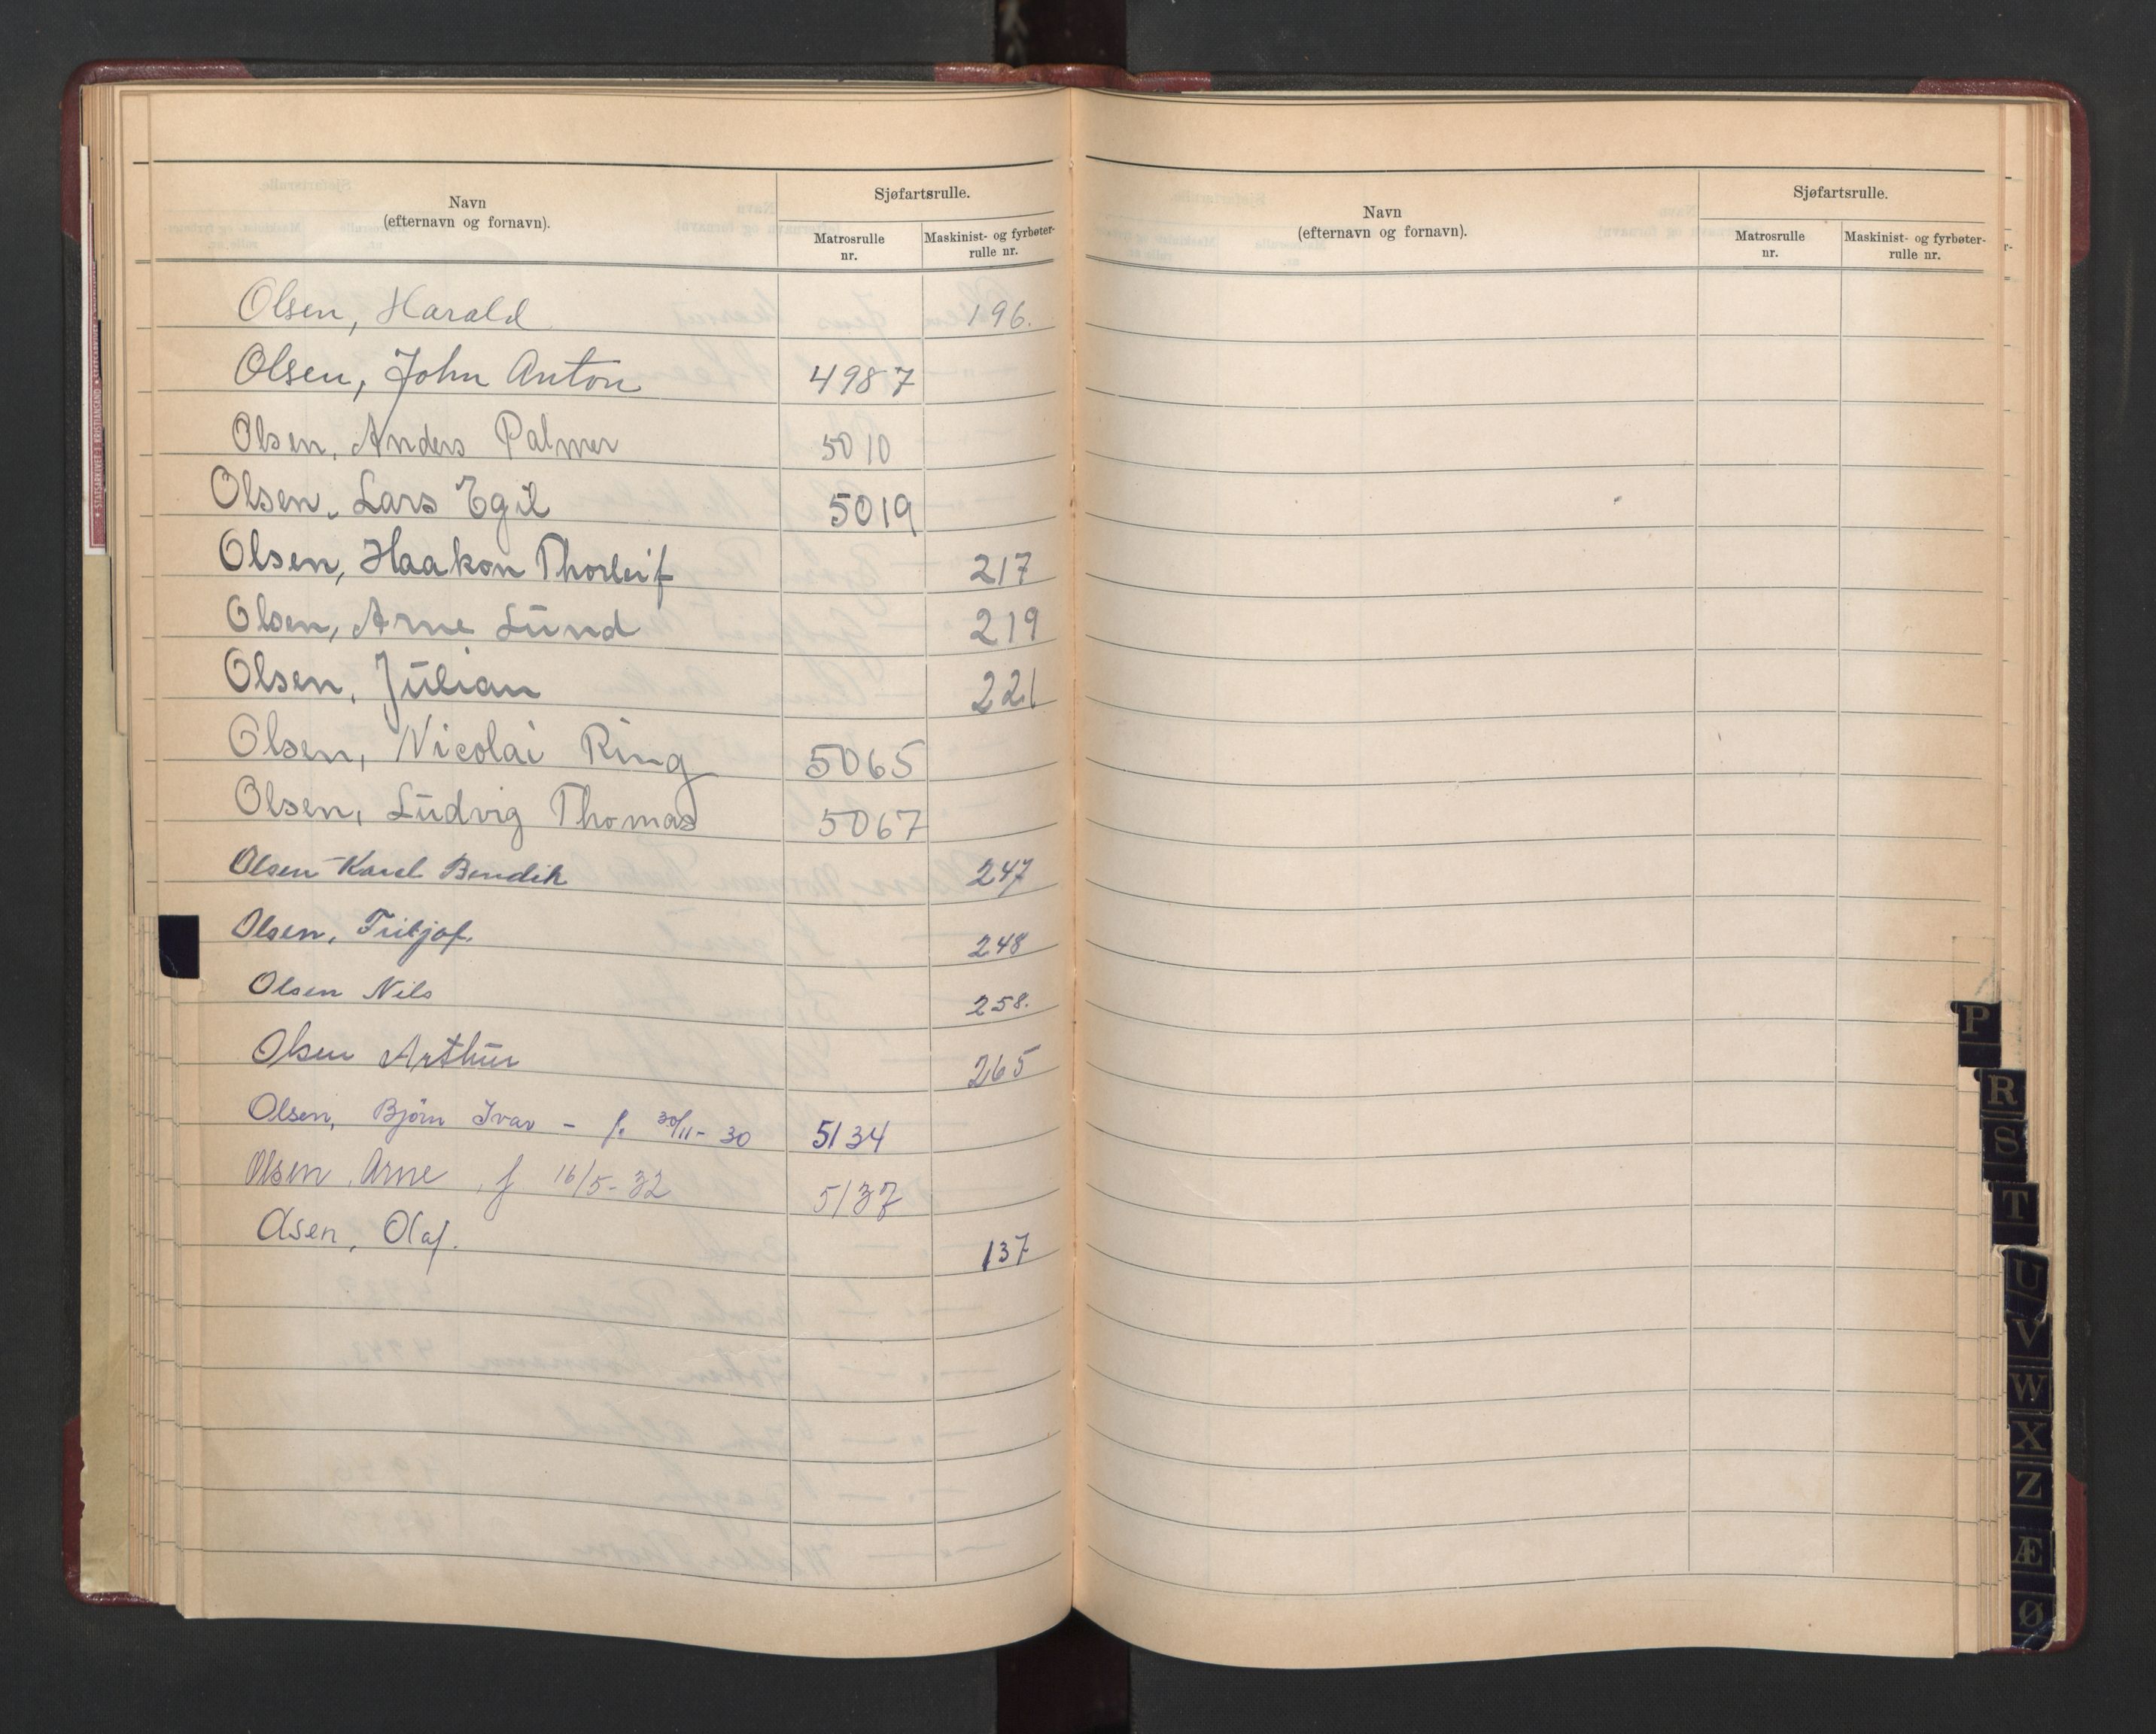 Navn
(efternavn og fornavn).
Sjøfartsrulle.
Matrosrulle
nr.
Maskinist- og fyrbøter-
rulle nr.
Olsen, Harald 196.
Olsen, John Anton 4987
Olsen, Anders Palmer 5010
Olsen, Lars Egil 5019
Olsen, Haakon Thorleif 217
Olsen, Arne Lund 219
Olsen, Julian 221
Olsen, Nicolai Ring 5065
Olsen, Ludvig Thomas 5067
Olsen Karel Bendik 247
Olsen, Fritjof. 248
Olsen Nils 258.
Olsen Arthur 265
Olsen, Bjørn Ivar - f. 30/11-30 5134
Olsen, Arne, f 16/5-32 5137
Olsen, Olaf. 137
Navn
(efternavn og fornavn).
Sjøfartsrulle.
Matrosrulle
nr.
Maskinist- og fyrbøter-
rulle nr.
P
R
S
T
U
V
W
X
Z
Æ
Ø